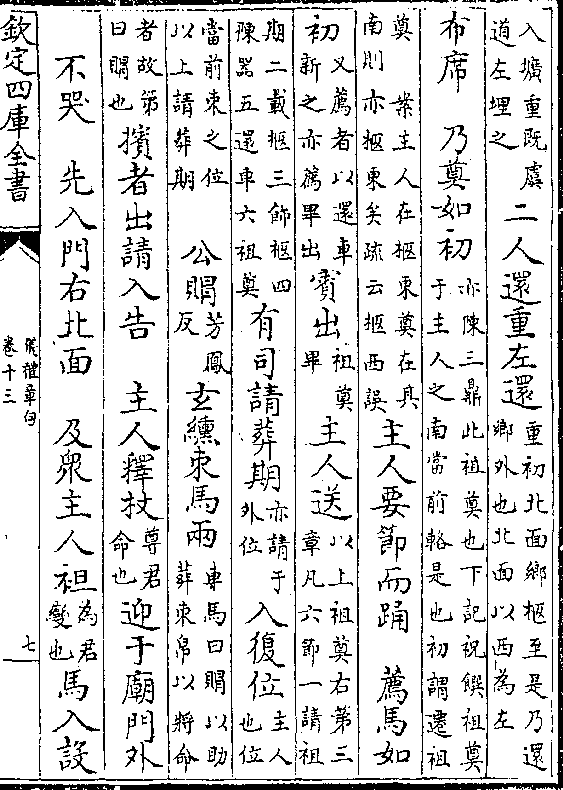 入壙重既虞道左埋之二人還重左還重初北面鄉柩至是乃還鄉外也北面以西為左
布席 乃奠如初亦陳三鼎此祖奠也下記祝饌祖奠于主人之南當前輅是也初謂遷祖
奠 業主人在柩東奠在具南則亦柩東矣疏云柩西誤主人要節而踊 薦馬如
初又薦者以還車新之亦薦畢出賓出祖奠畢 主人送以上祖奠右第三章凡六節一請祖
期二載柩三飾柩四陳器五還車六祖奠有司請葬期亦請于外位 入復位主人也位
當前束之位以上請葬期 公賵芳鳳反玄纁束馬兩車馬曰賵以助葬束帛以將命
者故第曰賵也擯者出請入告 主人釋杖尊君命也迎于廟門外
不哭 先入門右北面 及衆主人袒為君變也馬入設
欽定四庫全書
儀禮章句
卷十三
七